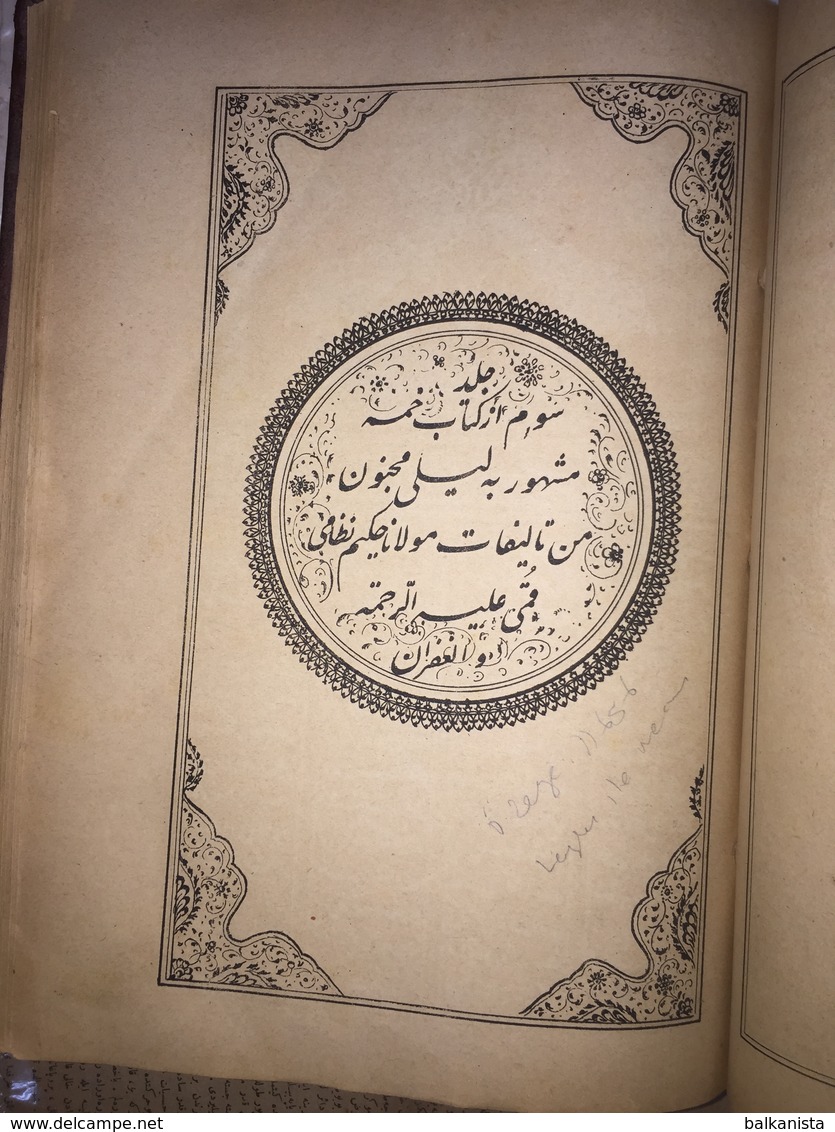 جلد
سوم از کتاب خمسه
مشهور به لیلی مجنون
من تالیفات مولانا حکیم نظامی
قمی علیه الرحمة
والغفران
www.delcampe.net
balkanista